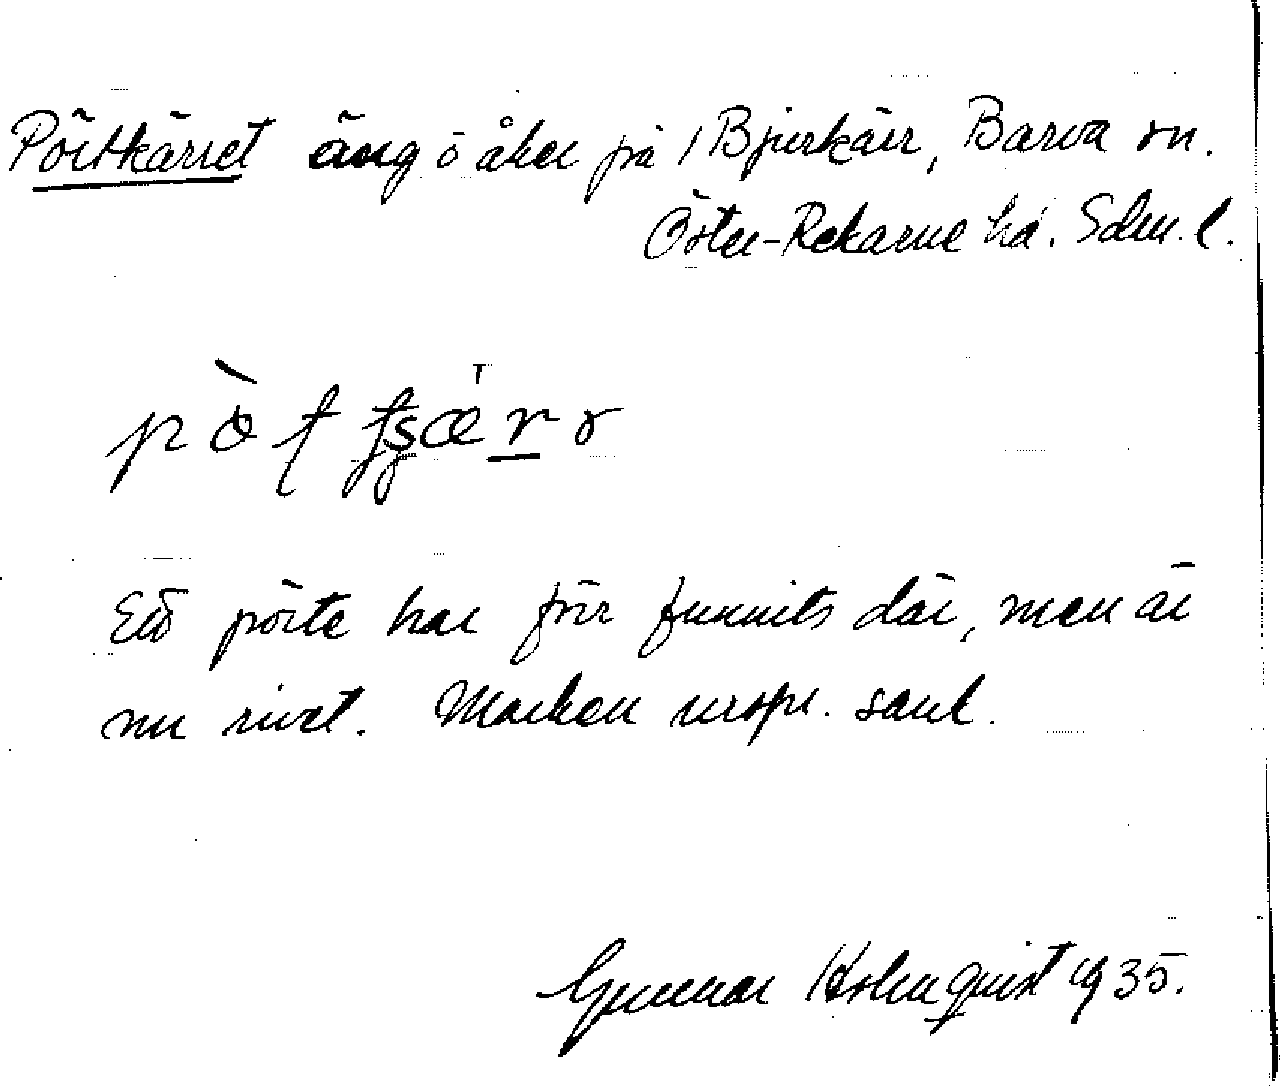 Pörtkärret äng o åker på Bjurkärr, Barva sn.
Öster-Rekarne hd. Sdm. l.
Ett pörte har förr funnits där, men är
nu rivet. Marken urspr. sank.
Gunnar Holmquist 1935.